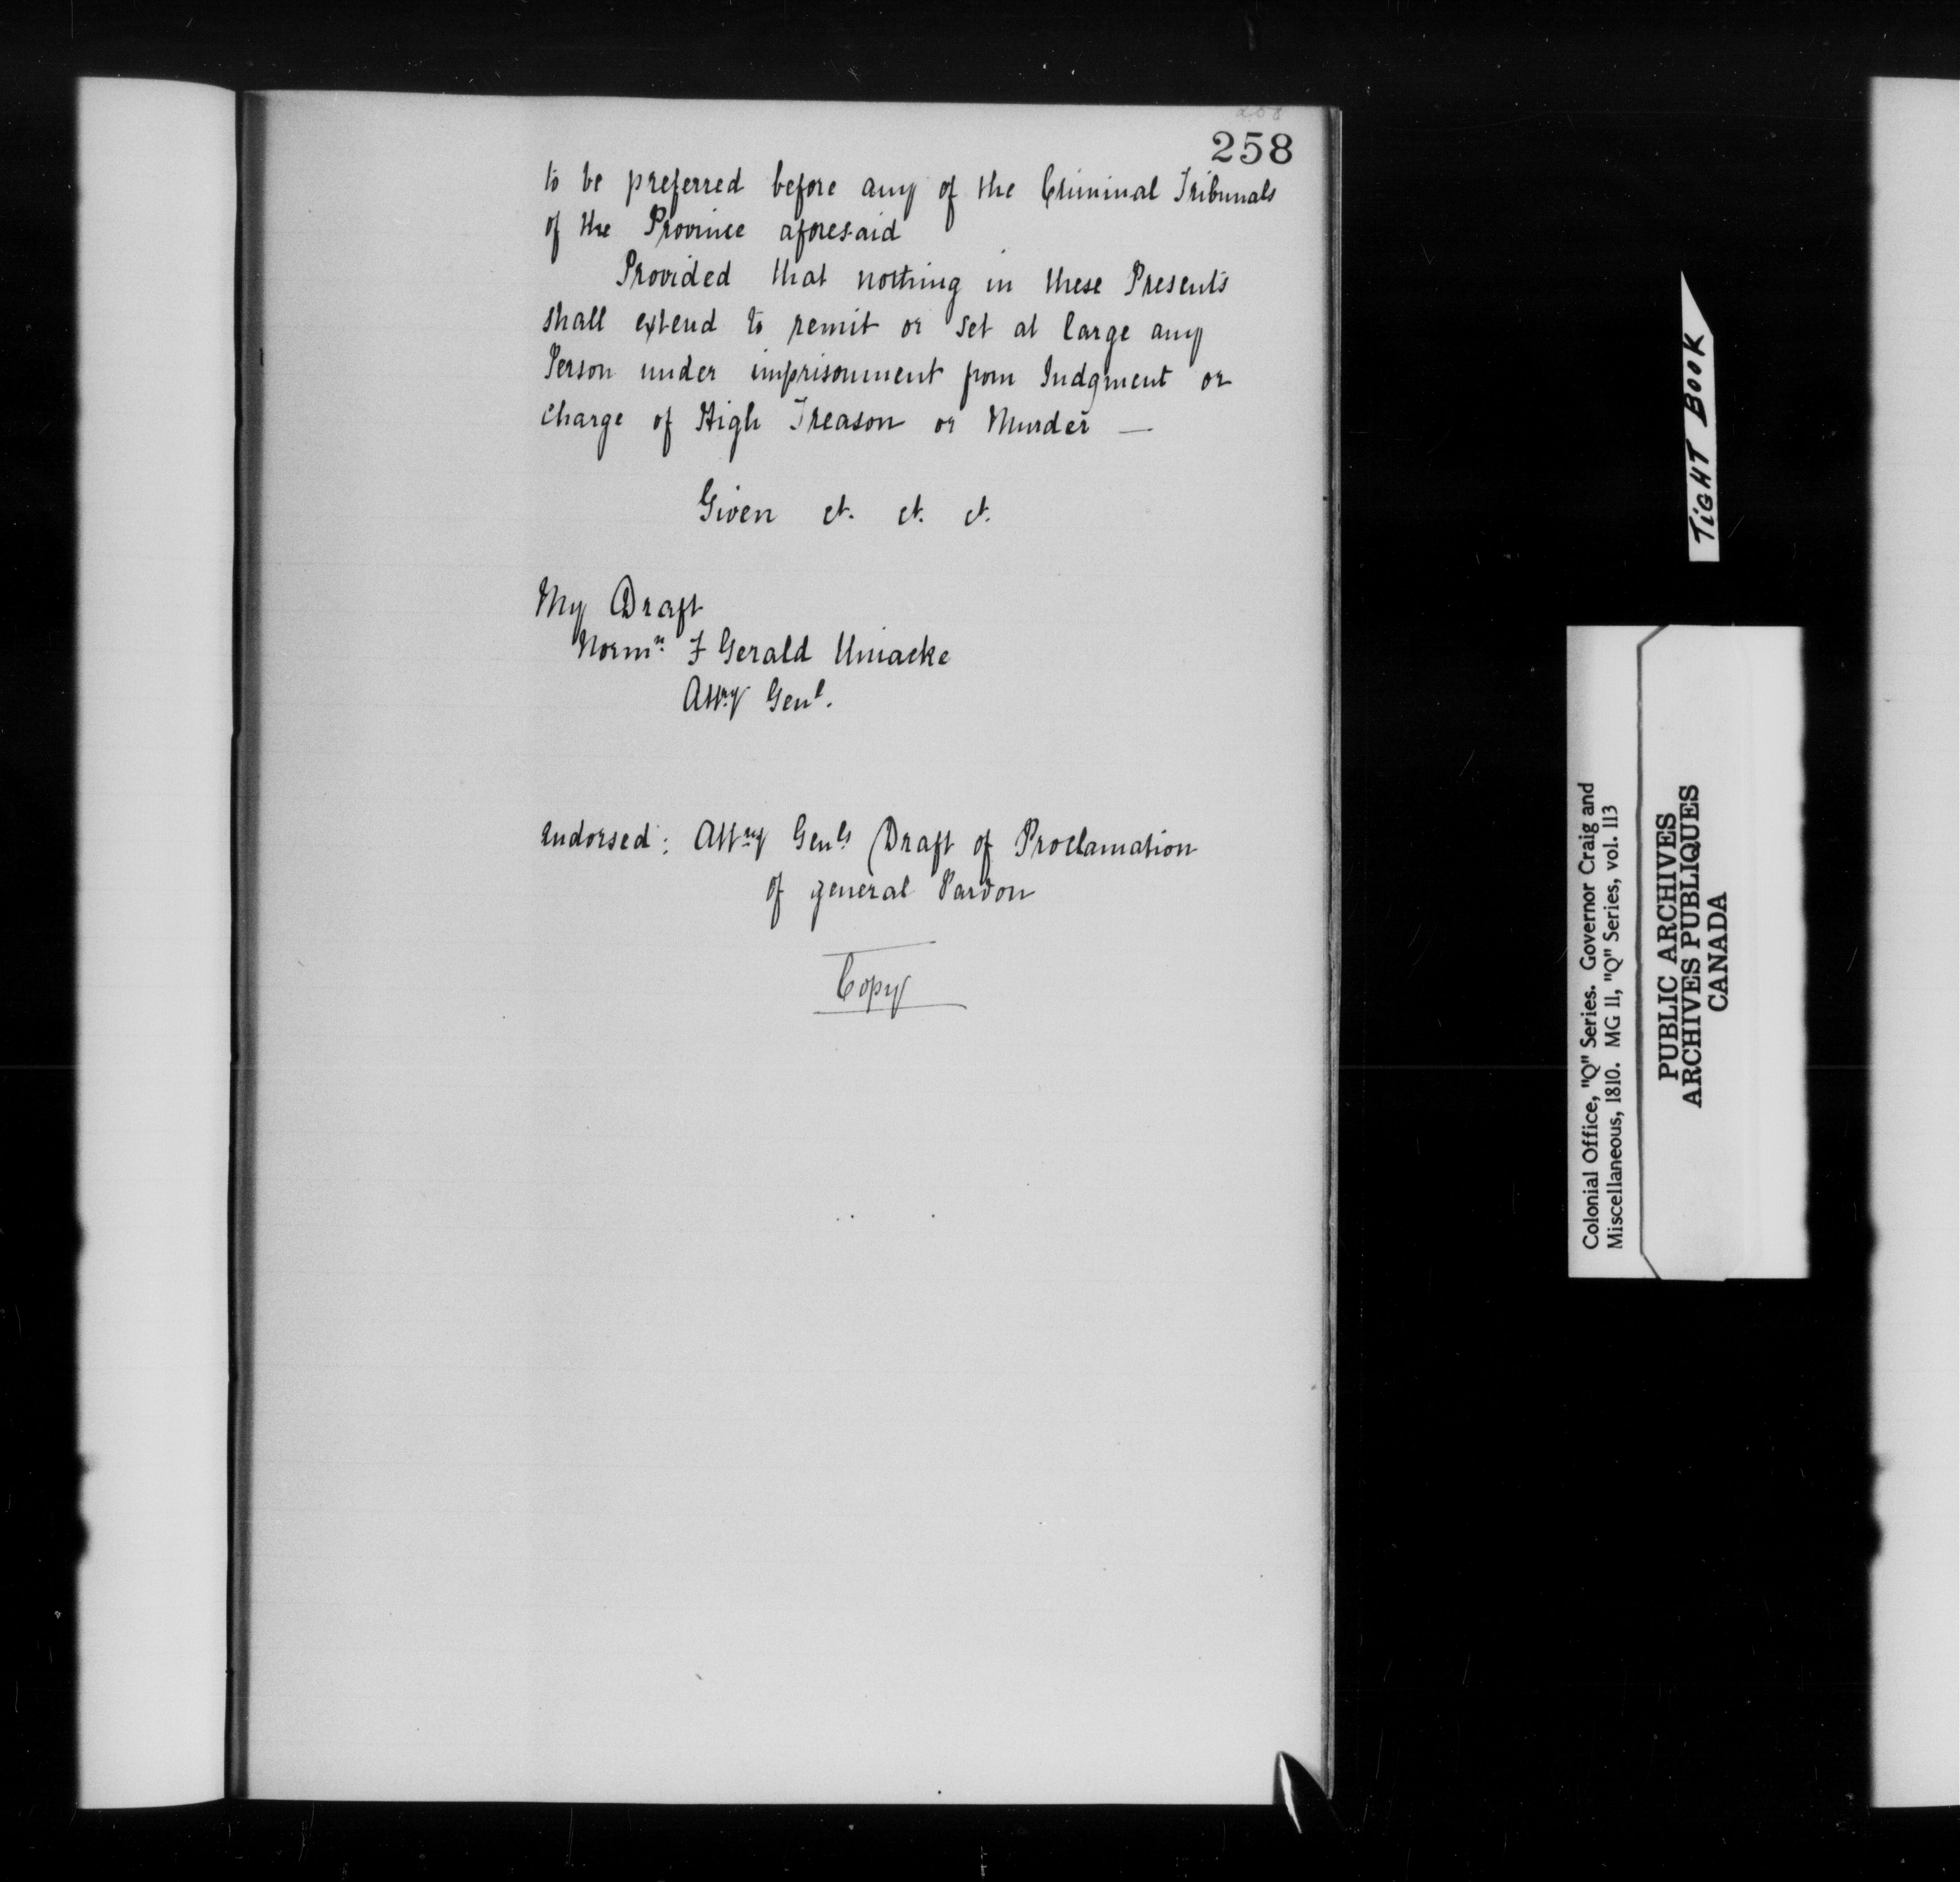 258
258
to be preferred before any of the Criminal Tribunals
of the Province aforesaid
Provided that nothing in these Presents
shall extend to remit or set at large any
Person under imprisonment from Judgment or
charge of High Treason or Murder —
Given et. et. et.
My Draft
Normn F Gerald Uniacke
Attny Genl.
Endorsed: Attny Genls Draft of Proclamation
of general Pardon
Copy
TIGHT BOOK
Colonial Office, "Q" Series. Governor Craig and
Miscellaneous, 1810. MG 11, "Q" Series, vol. 113
PUBLIC ARCHIVES
ARCHIVES PUBLIQUES
CANADA